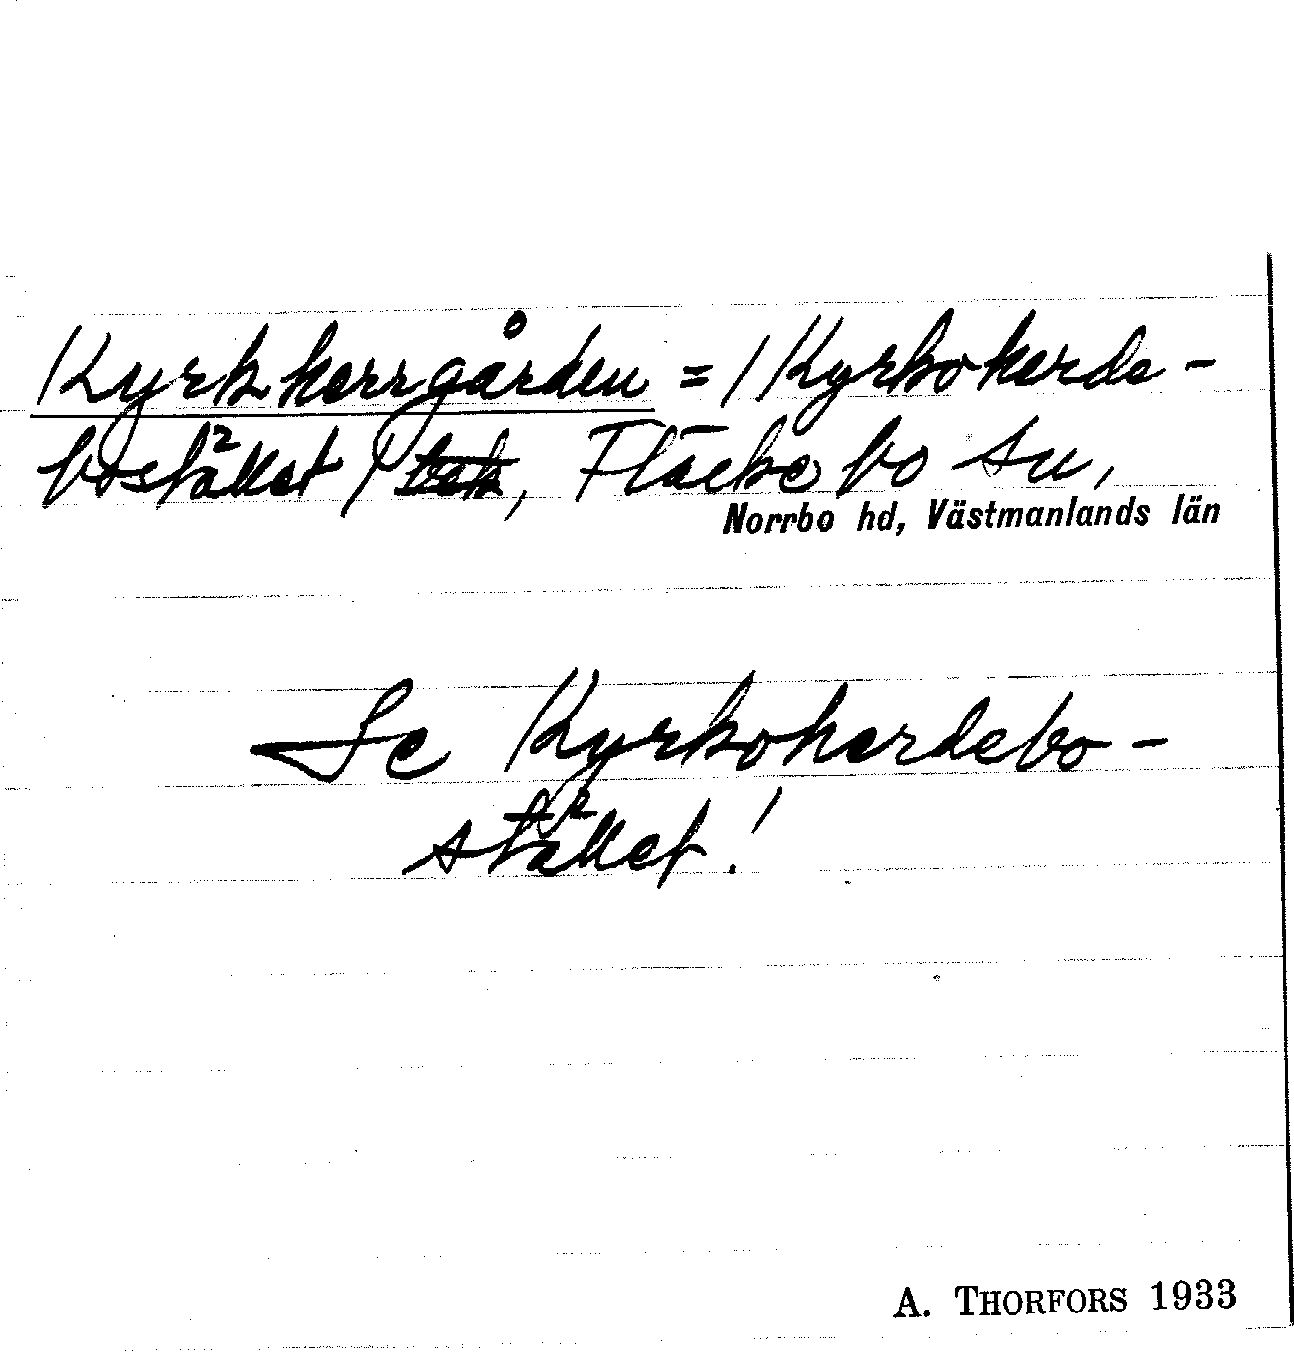 Kyrkherrgården = / Kyrkoherde-
bostället /, Fläckebo sn,
Norrbo hd, Västmanlands län
Se Kyrkoherdebo-
stället!
A. THORFORS 1933